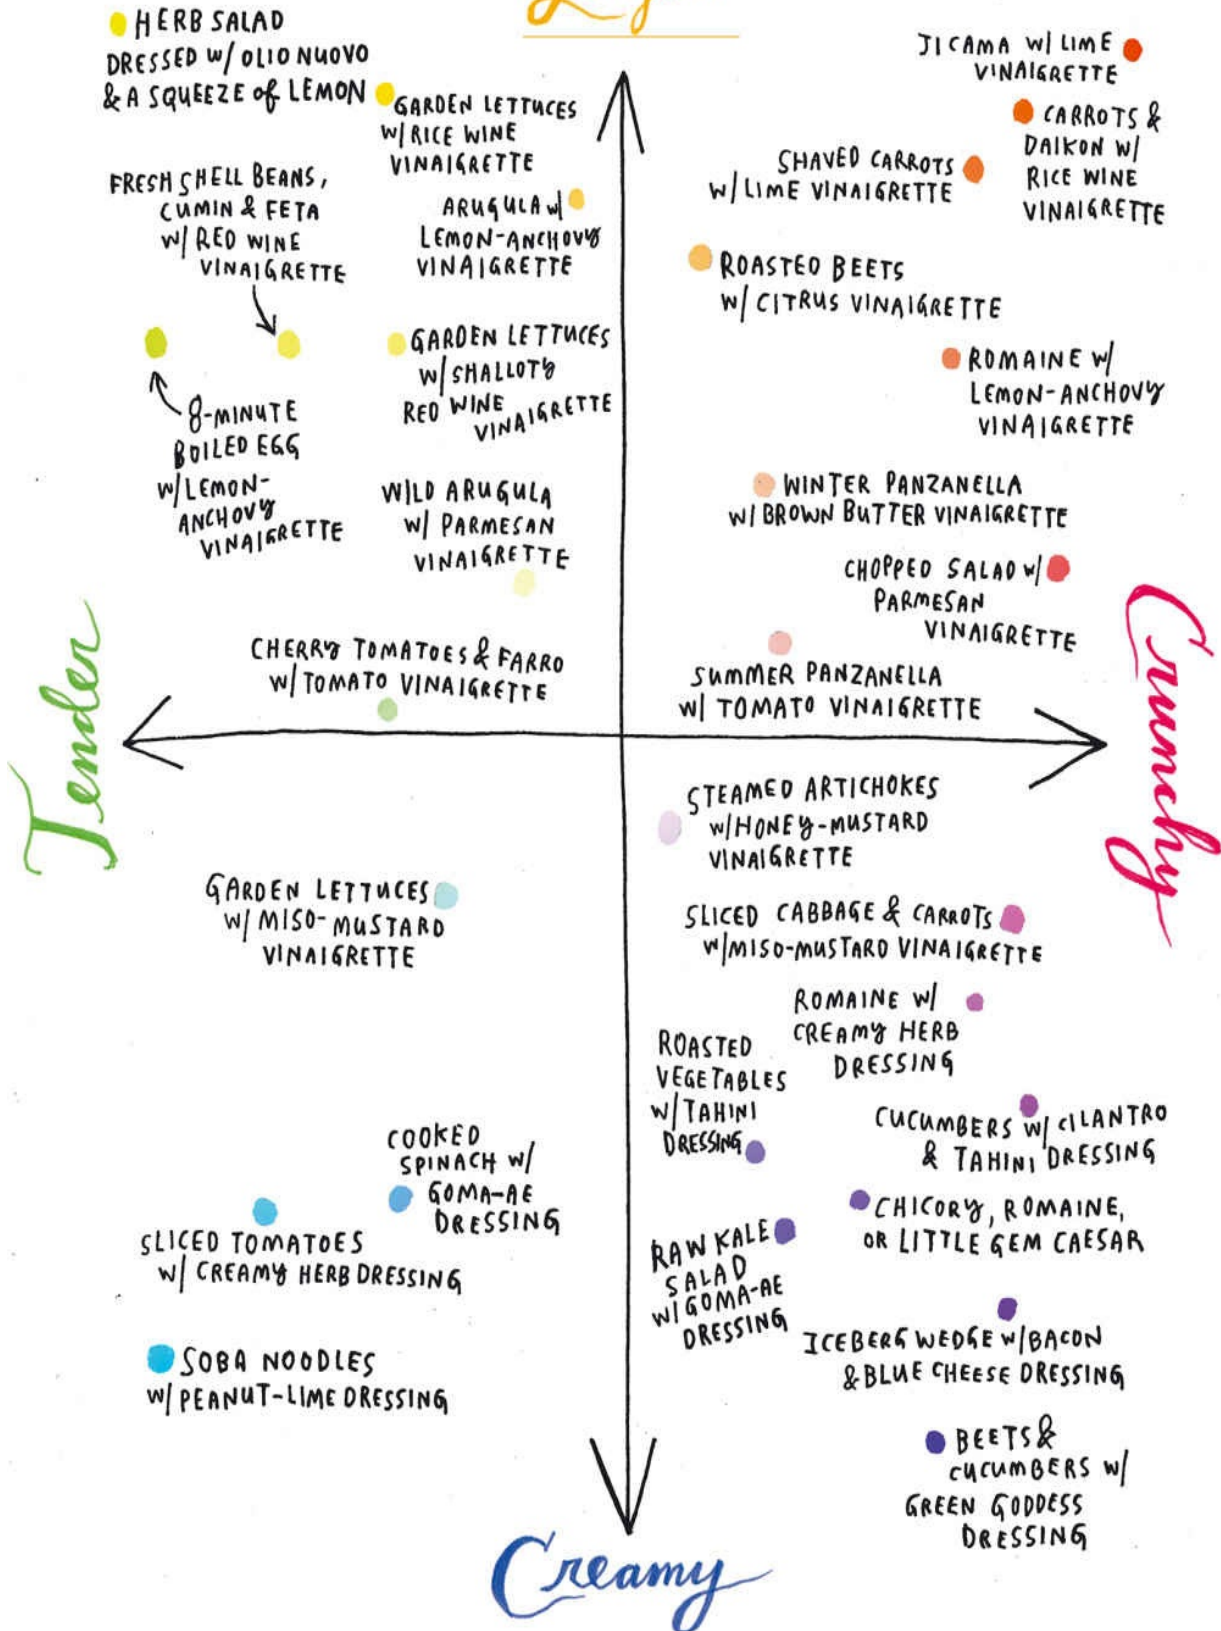 HERB SALAD
DRESSED W/ OLIO NUOVO
& A SQUEEZE of LEMON
GARDEN LETTUCES
W/ RICE WINE
VINAIGRETTE
FRESH SHELL BEANS,
CUMIN & FETA
W/ RED WINE
VINAIGRETTE
ARUGULA w/
LEMON-ANCHOVY
VINAIGRETTE
GARDEN LETTUCES
W/ SHALLOTY
RED WINE
VINAIGRETTE
8-MINUTE
BOILED EGG
W/ LEMON-
ANCHOVY
VINAIGRETTE
WILD ARUGULA
W/ PARMESAN
VINAIGRETTE
CHERRY TOMATOES & FARRO
W/ TOMATO VINAIGRETTE
JICAMA W/ LIME
VINAIGRETTE
CARROTS &
DAIKON W/
RICE WINE
VINAIGRETTE
SHAVED CARROTS
W/ LIME VINAIGRETTE
ROASTED BEETS
W/ CITRUS VINAIGRETTE
ROMAINE W/
LEMON-ANCHOVY
VINAIGRETTE
WINTER PANZANELLA
W/ BROWN BUTTER VINAIGRETTE
CHOPPED SALAD w/
PARMESAN
VINAIGRETTE
SUMMER PANZANELLA
W/ TOMATO VINAIGRETTE
Tender
Crunchy
GARDEN LETTUCES
W/ MISO-MUSTARD
VINAIGRETTE
COOKED
SPINACH W/
GOMA-AE
DRESSING
SLICED TOMATOES
W/ CREAMY HERB DRESSING
SOBA NOODLES
W/ PEANUT-LIME DRESSING
STEAMED ARTICHOKES
W/ HONEY-MUSTARD
VINAIGRETTE
SLICED CABBAGE & CARROTS
W/ MISO-MUSTARD VINAIGRETTE
ROMAINE W/
CREAMY HERB
DRESSING
ROASTED
VEGETABLES
W/ TAHINI
DRESSING
CUCUMBERS W/ CILANTRO
& TAHINI DRESSING
CHICORY, ROMAINE,
OR LITTLE GEM CAESAR
RAW KALE
SALAD
W/ GOMA-AE
DRESSING
ICEBERG WEDGE W/ BACON
& BLUE CHEESE DRESSING
BEETS &
CUCUMBERS W/
GREEN GODDESS
DRESSING
Creamy